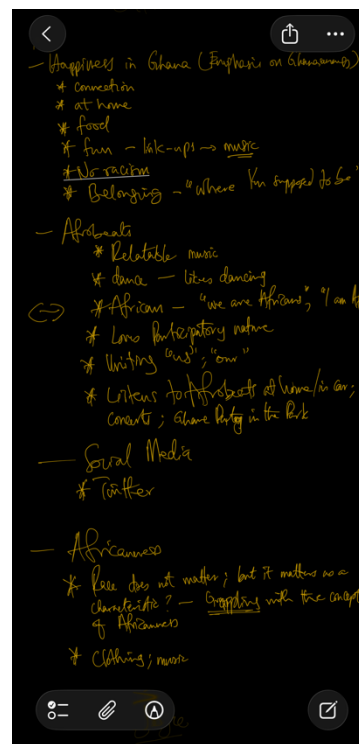 — Happiness in Ghana (Emphasis on Ghanaianness)
* connection
* at home
* food
* fun – link-ups → music
* No racism
* Belonging – "where I'm supposed to be"
— Afrobeats
* Relatable music
* dance — likes dancing
* African – "we are Africans"; "I am
* Loves Participatory nature
* Uniting "us"; "our"
* Listens to Afrobeats at home/in car;
concerts; Ghana Party in the Park
— Social Media
* Twitter
— Africanness
* Race does not matter; but it matters as a
characteristic? – Grappling with the concept
of Africanness
* Clothing; music